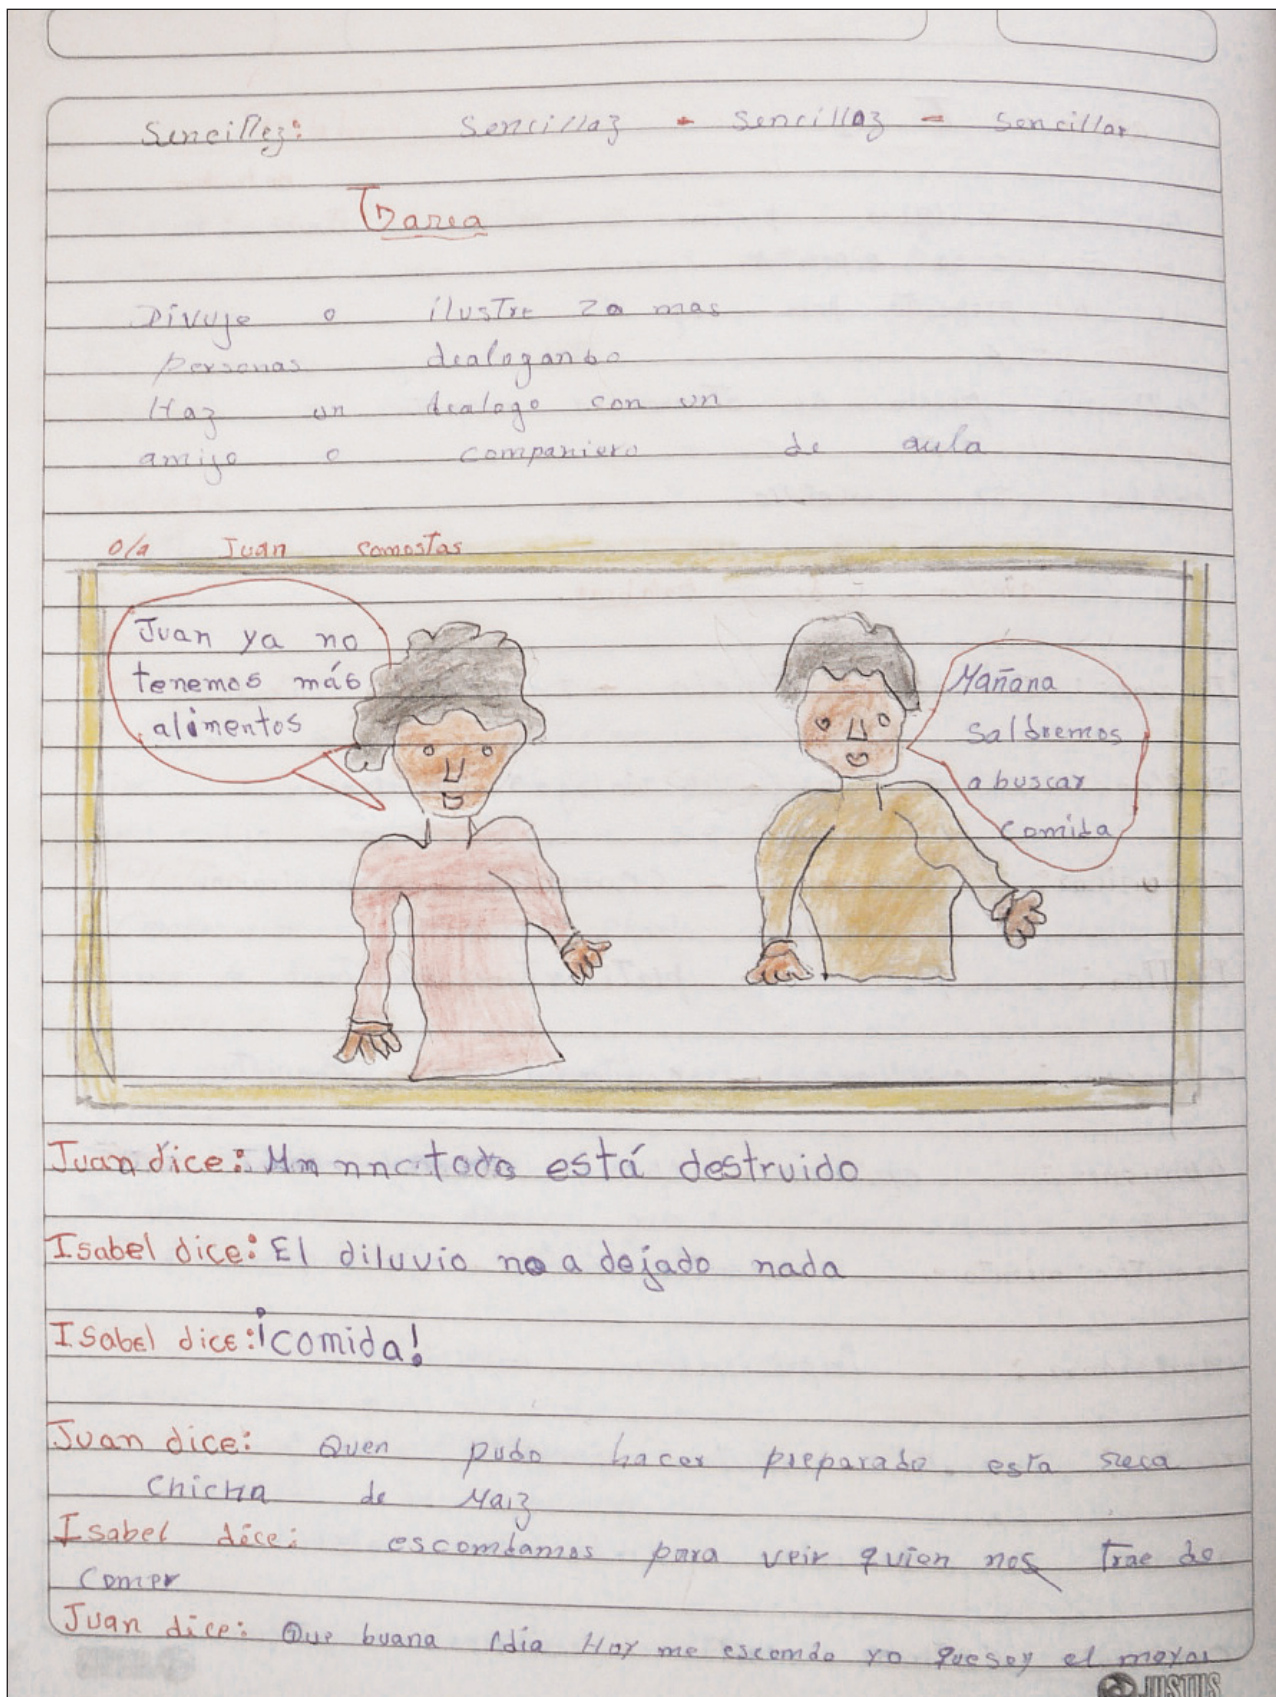 Sencillez: Sencillaz - Sencillaz - Sencillar
Tarea
Divuje o ilustre 2 o mas
personas dealogando
Haz un dealogo con un
amigo o companiero de aula
ola Juan comostas
Juan ya no
tenemos más
alimentos
Mañana
saldremos
a buscar
comida
Juan dice: todo está destruido
Isabel dice: El diluvio no a dejado nada
Isabel dice: ¡comida!
Juan dice: Quen pudo hacer preparado esta
chicha de Maiz
Isabel dice: escomdamos para veir quien nos trae de
comer
Juan dice: Que buana Idia Hoy me escondo yo que soy el mayor
JUSTUS